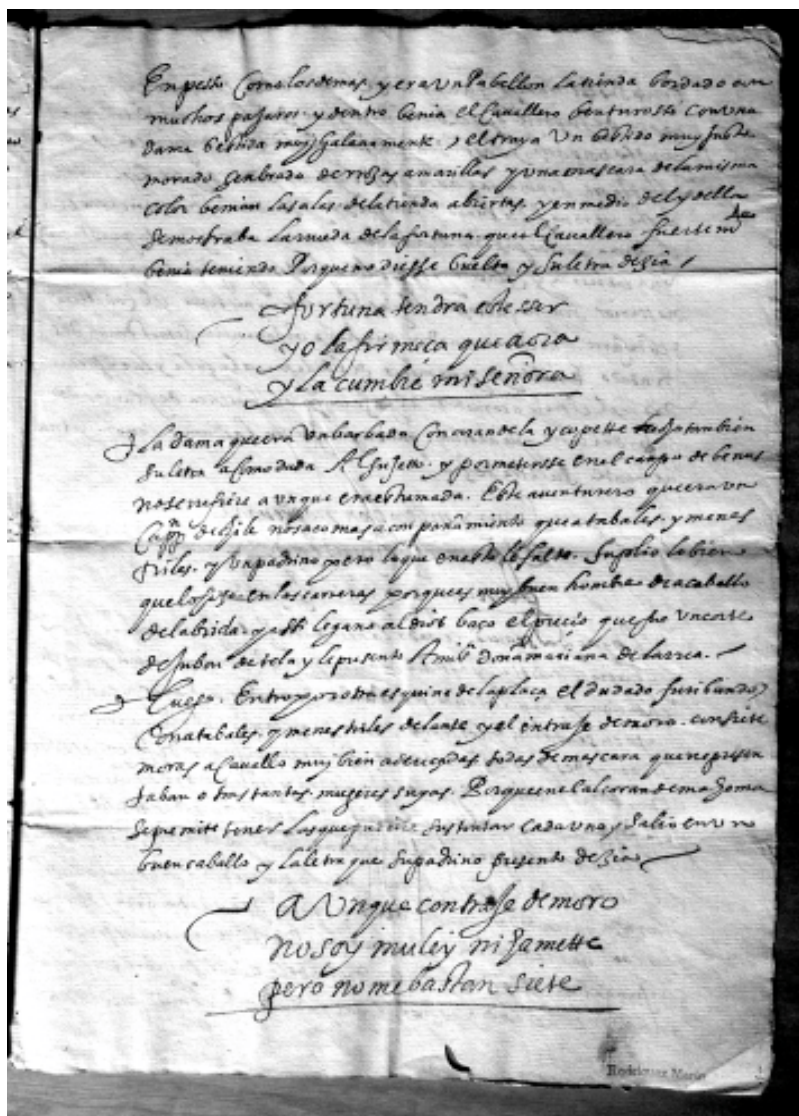 Enpesto Como los demas. y era Un Pabellon La tienda bordado con
muchos pajaros. y dentro benia el Cavallero benturosso con Una
dama bestida muy Galanamente. y el traya Un bestido muy justo
morado senbrado de rrosas amarillas y una mascara de la misma
Color benian las alas de la tienda abiertas. y en medio del y della
se mostraba la rrueda de la fortuna. que el Cavallero fuertemte
benia teniendo Porque no diesse buelta y su letra dezia /
fortuna tendra este sser
yo la firmeça que aora
y la cumbre mi señora
La dama que era Un barbado Con arandela y copette tambien
su letra acomodada Al sujetto. y por meterse en el campo de benus
no se rrefiere aunque era estremada. Este auenturero que era un
Cappn de no saco mas acompañamiento que atabales. y menes
triles. y Un padrino pero lo que en esto le falto. suplio lo bien
que lo hizo en las carreras porque es muy buen hombre de a caballo
de la brida. y assi le gano al dios baço el precio que fue un corte
de jubon de tela y le presento A mi sa doña mariana de larrea.
Luego. Entro por otra esquina de la plaça el dudado furibundo
Con atabales. y menestriles delante y el en traje de moro. con siete
moras a Cavallo muy bien adereçadas todas de mascara que represen
taban otras tantas mugeres suyas. Porque en el alcoran de mahoma
se premite tener Las que pudiere sustentar cada uno y salio en un
buen caballo y La letra que su padrino presento dezia
aUnque con traje de moro
no soy muley ni hamette
pero no me bastan siete
Rodriguez Marin